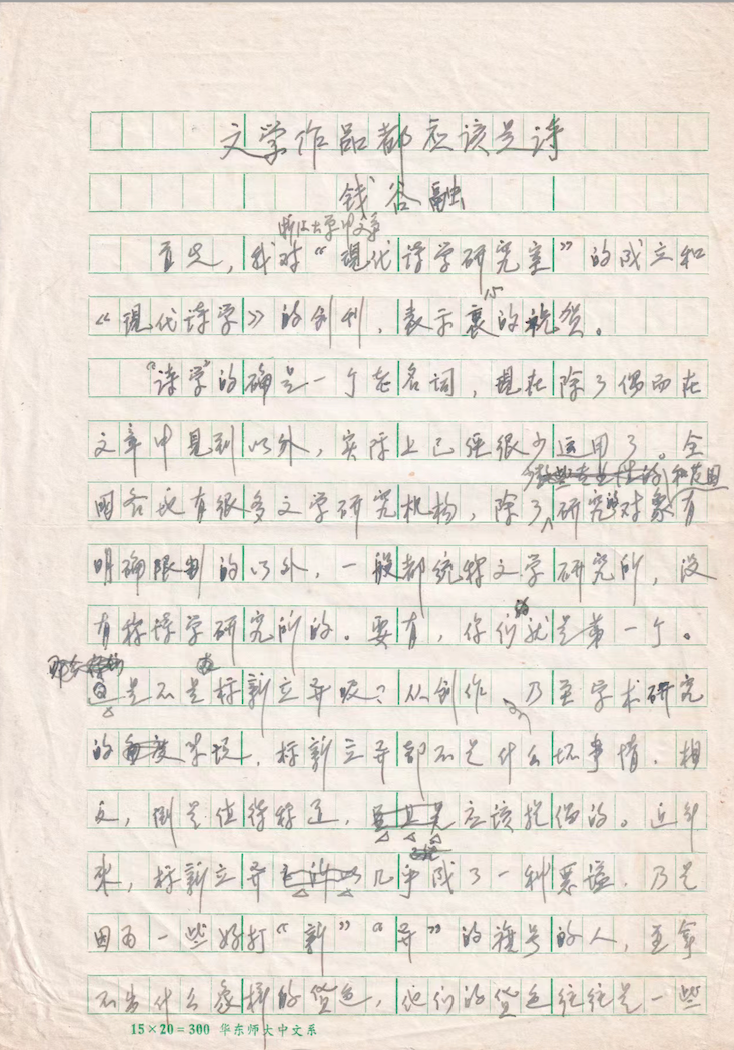 文学作品都应该是诗
钱谷融
浙江大学中文系
首先，我对“现代诗学研究室”的成立和
《现代诗学》的创刊，表示衷心的祝贺。
“诗学”的确是一个老名词，现在除了偶而在
文章中见到以外，实际上已经很少运用了。全
和范围
国各地有很多文学研究机构，除了研究的对象有
明确限制的以外，一般都统称文学研究所，没
有称诗学研究所的。要有，你们的就是第一个。
是不是标新立异呢？从创作、乃至学术研究
的来说，标新立异都不是什么坏事情，相
反，倒是值得称道，应该提倡的。近年
来，标新立异几乎成了一种恶谥，乃是
因为一些好打“新”“异”的旗号的人，并拿
不出什么像样的货色，他们的货色往往是一些
15×20=300 华东师大中文系